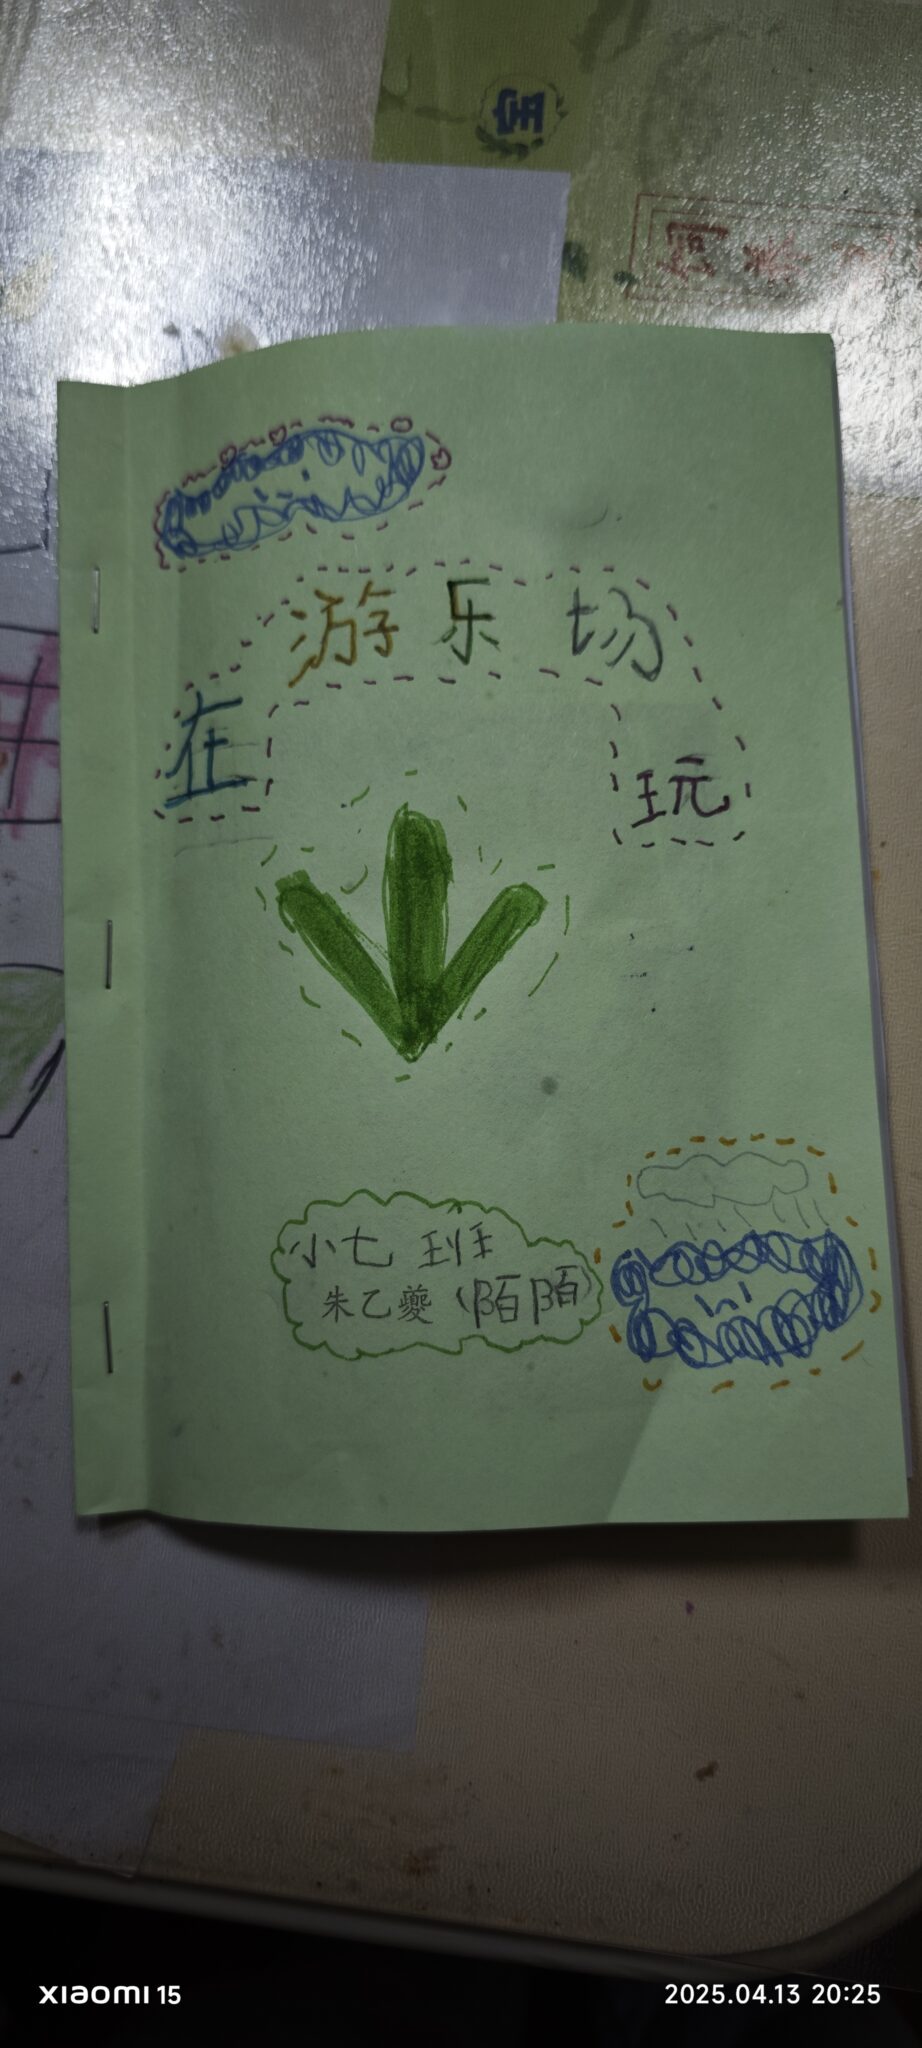 在游乐场玩
小七 班
朱乙夔(陌陌)
xiaomi 15
2025.04.13 20:25